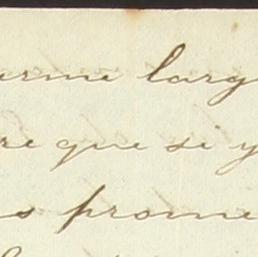 erme larg
re que si y
s prome